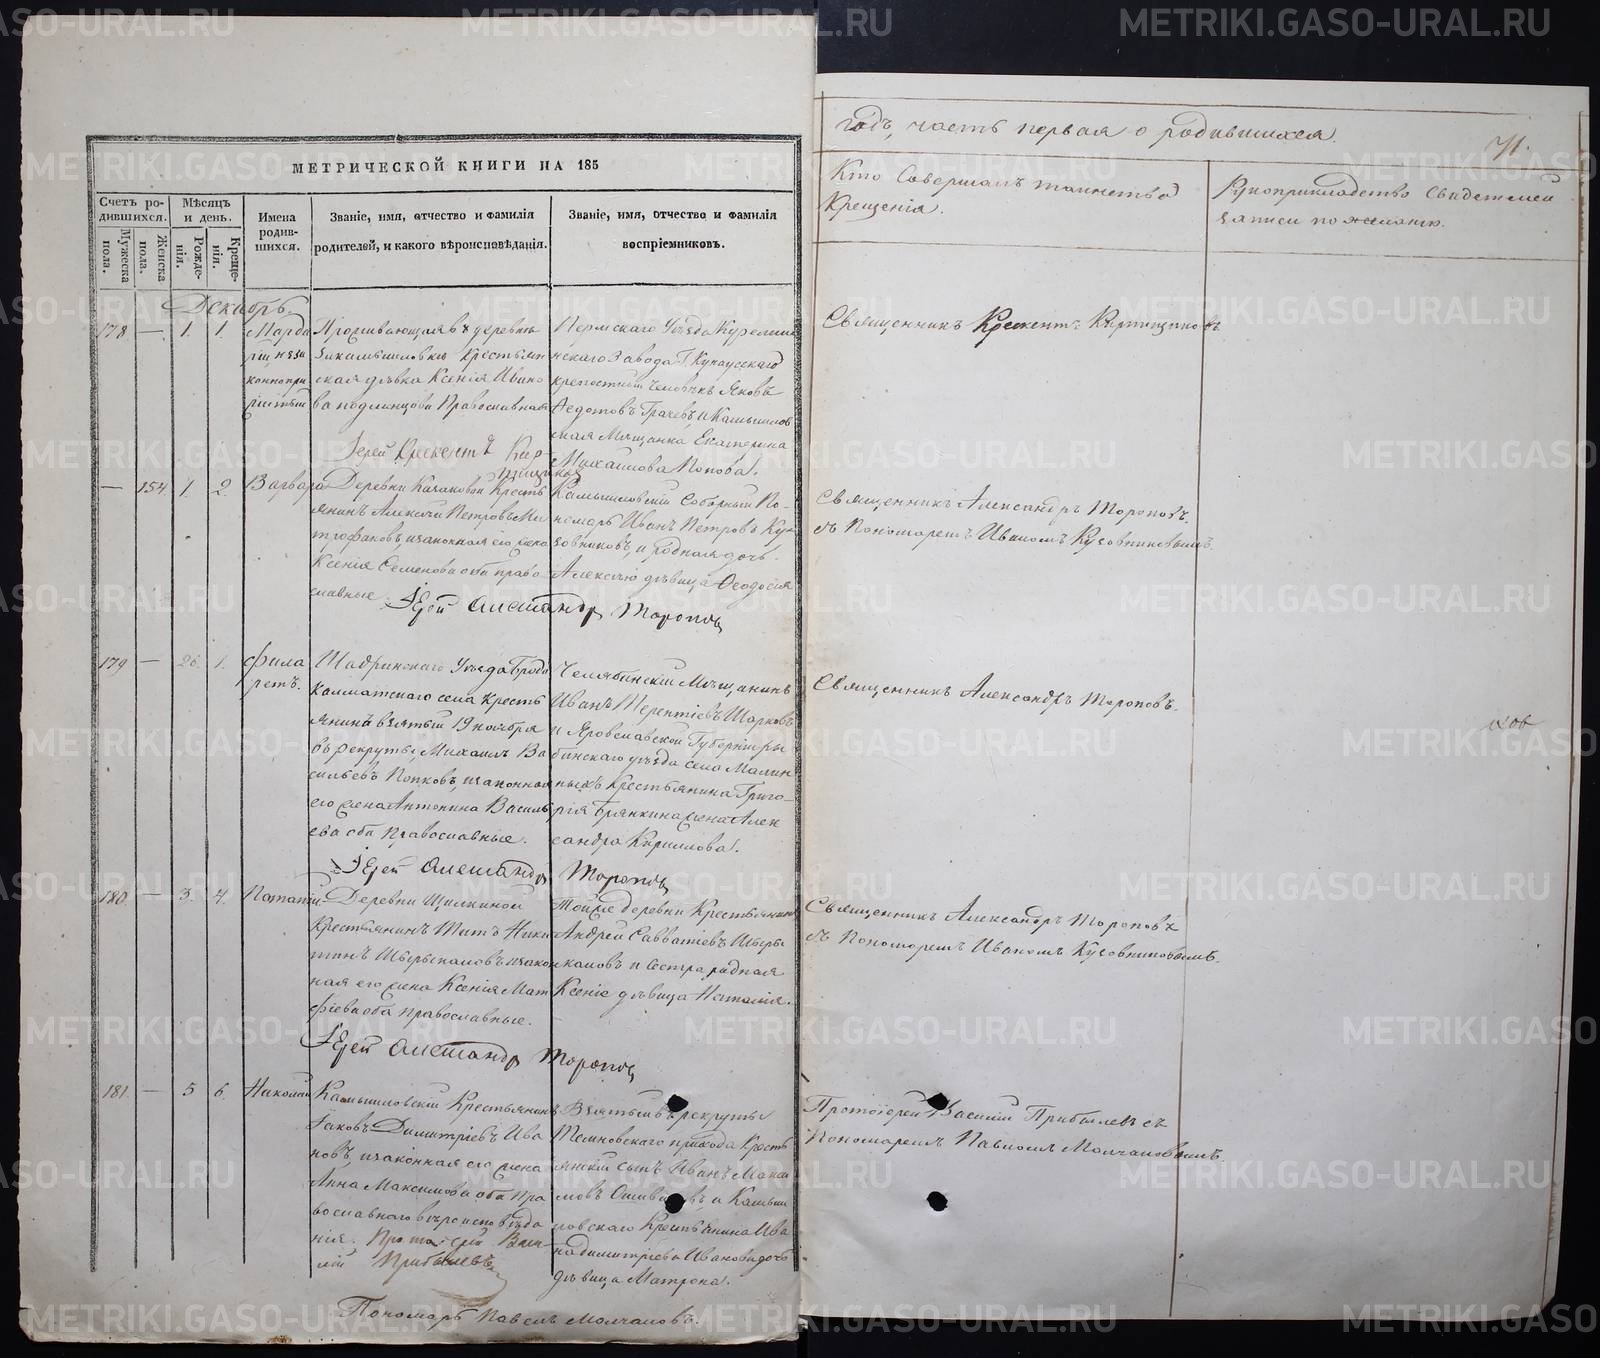 МЕТРИЧЕСКОЙ КНИГИ НА 185
Счетъ ро-
дившихся.
Мѣсяцъ
и день.
Мужеска
пола.
Женска
пола.
Рожде-
нія.
Креще-
нія.
Имена
родив-
шихся.
Званіе, имя, отчество и фамилія
родителей, и какого вѣроисповѣданія.
Званіе, имя, отчество и фамилія
воспріемниковъ.
годъ, часть первая о родившихся.
71.
Кто Совершалъ таинство
Крещенія.
Рукоприкладство Свидетелей
записи по желанію.
Декабрь
178 — 1. 1.
Проживающая въ деревни
крестьян
ская дѣвка Ксенія Ивано
ва Православная
Іерей Крескентъ Кир
пищиковъ
Пермскаго Уѣзда
Завода Г.
крепостный человѣкъ Яковъ
Федотовъ Грачевъ, и Камышлов
ская Мѣщанка Екатерина
Михайлова Попова.
Священникъ Крескентъ Кирпищиковъ
— 154 1. 2. Варвара
Деревни Казаковой Кресть
янинъ Алексѣй Петровъ Ми
трофановъ, и законная его жена
Ксенія Семенова оба право
славные.
Іерей Александръ Тороповъ
Камышловскій Соборный По-
номарь Иванъ Петровъ Ку-
зовниковъ, и родная дочь
Алексѣю дѣвица Феодосія
Священникъ Александръ Тороповъ.
съ Пономаремъ Иваномъ Кузовниковымъ.
179 — 26. 1. Фила
ретъ.
Шадринскаго Уѣзда Броди
калматскаго села Кресть
янинъ взятый 19 ноября
въ рекруты, Михаилъ Ва
сильевъ Попковъ, и законная
его жена Антонина Василь
ева оба Православные.
Іерей Александръ Тороповъ
Челябинскій Мѣщанинъ
Иванъ Терентіевъ Шарковъ
и Ярославской Губерніи Ры
бинскаго уѣзда села Малин
ныхъ крестьянина Григо-
рія Брянкина жена Алек
сандра Кирилова.
Священникъ Александръ Тороповъ.
180 — 3. 4. Потапій
Деревни Щилкиной
Крестьянинъ Титъ Ники
тинъ и закон
ная его жена Ксенія Мат
фіева оба православные.
Іерей Александръ Тороповъ
Тойже деревни Крестьянинъ
Андрей Савватіевъ
и Сестра родная
Ксеніе дѣвица Наталія.
Священникъ Александръ Тороповъ
съ Пономаремъ Иваномъ Кузовниковымъ.
181. — 5 6. Николай
Камышловскій Крестьянинъ
Іаковъ Димитріевъ Ива
новъ, и законная его жена
Анна Максимова оба пра
вославнаго вѣроисповѣда
нія. Протоіерей Васи-
лій Прибылевъ
Пономарь Павелъ Молчановъ.
Взятый въ рекруты
Темновскаго прихода Кресть
янскій сынъ Иванъ Макси
мовъ и Камыш
ловскаго Крестьянина Ива
на Димитріева Иванова дочь
дѣвица Матрона.
Протоіерей Василій Прибылевъ съ
Пономаремъ Павломъ Молчановымъ.
METRIKI.GASO-URAL.RU